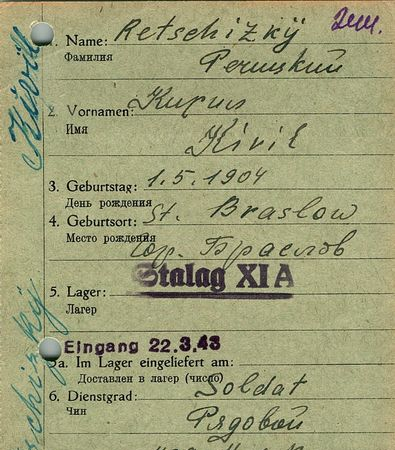 1. Name: Retschizkÿ
Фамилия Речицкий
2. Vornamen: Кирил
Имя Kiril
3. Geburtstag: 1.5.1904
День рождения
4. Geburtsort: St. Braslow
Место рождения Гор. Браслов
Stalag XI A
5. Lager:
Лагер
Eingang 22.3.43
5a. Im Lager eingeliefert am:
Доставлен в лагер (число)
6. Dienstgrad: Soldat
Чин Рядовой
Kiril